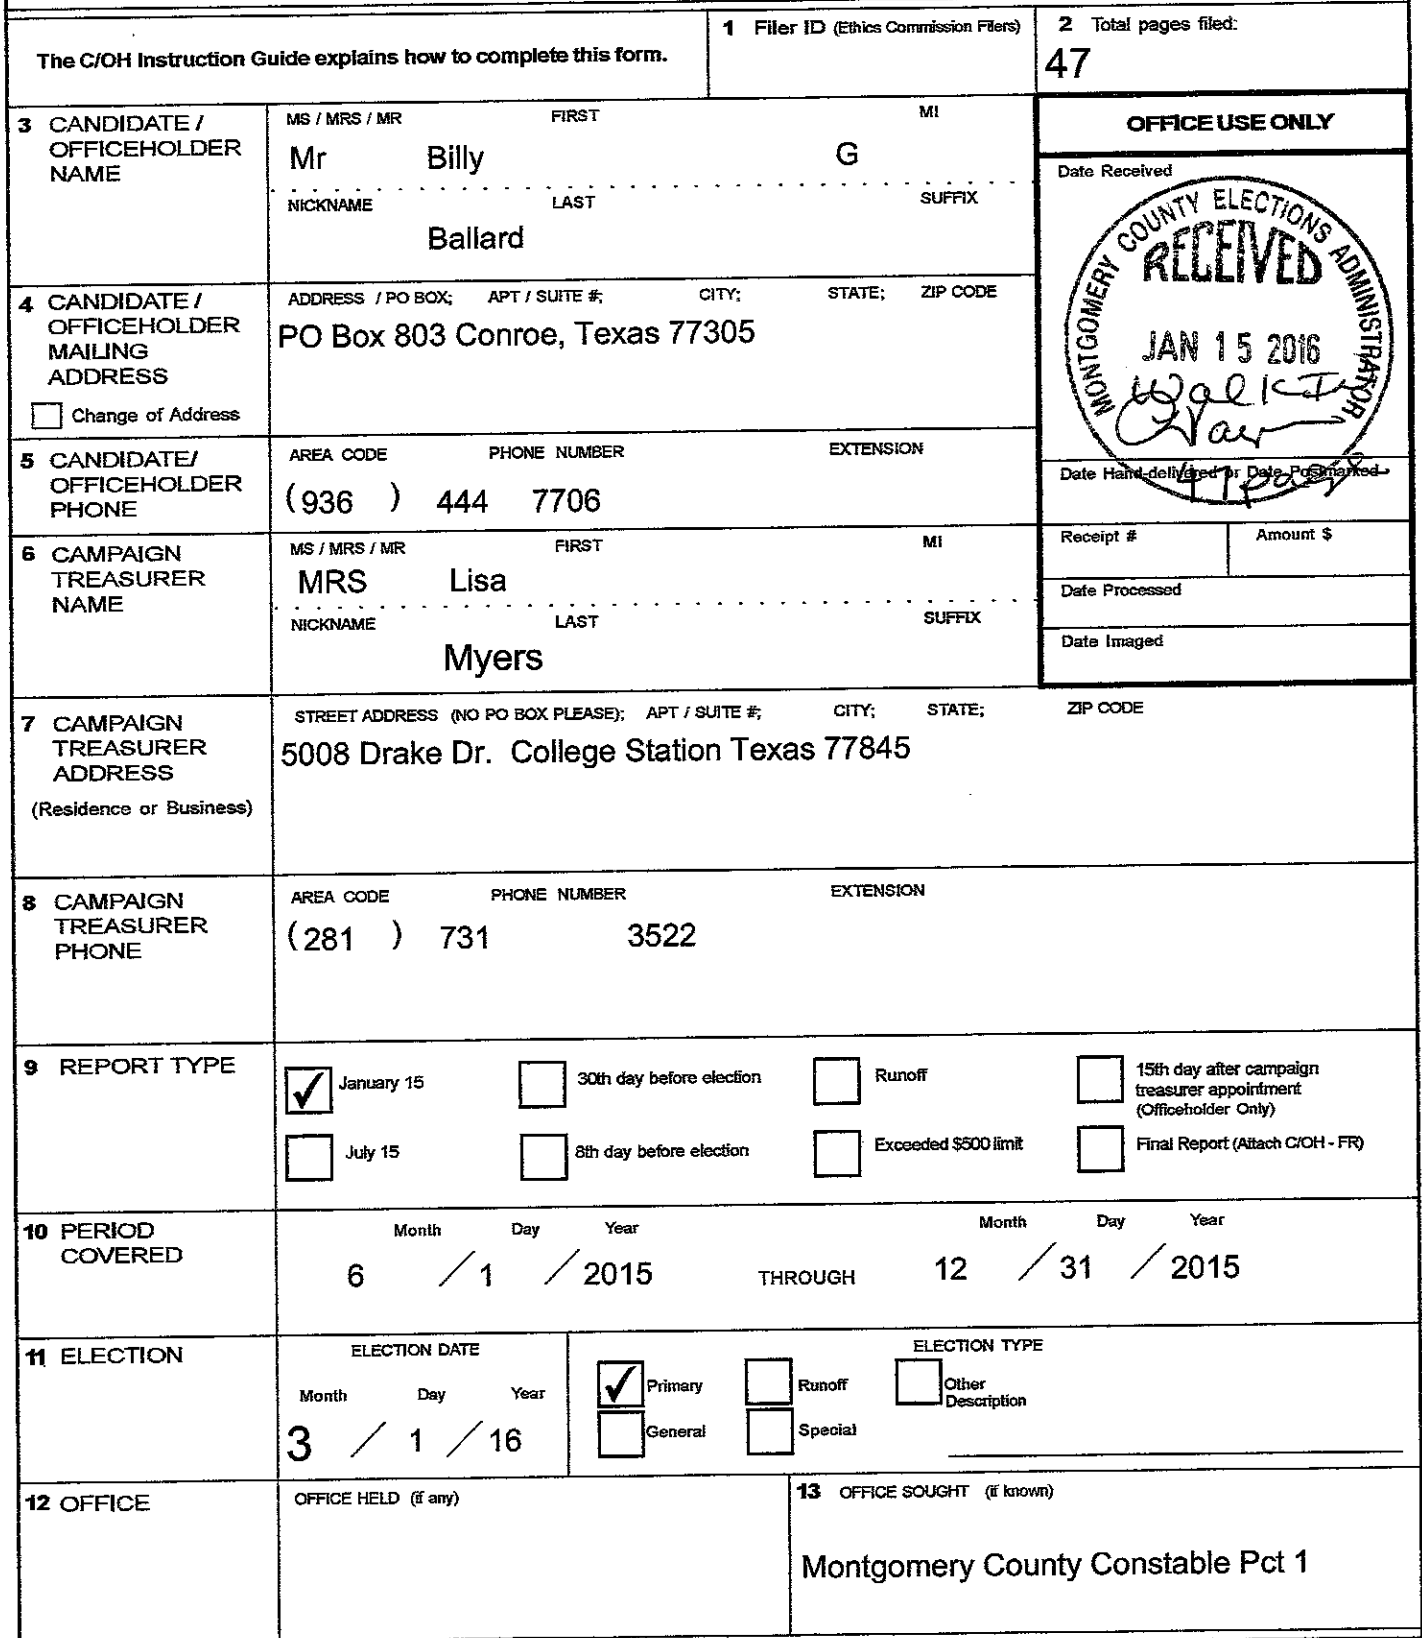 The C/OH Instruction Guide explains how to complete this form.
1 Filer ID (Ethics Commission Filers)
2 Total pages filed:
47
3 CANDIDATE / OFFICEHOLDER NAME
MS / MRS / MR FIRST MI
Mr Billy G
NICKNAME LAST SUFFIX
Ballard
OFFICE USE ONLY
Date Received
MONTGOMERY COUNTY ELECTIONS ADMINISTRATOR
RECEIVED
JAN 15 2016
Walk In
47 pages
Date Hand-delivered or Date Postmarked
Receipt # Amount $
Date Processed
Date Imaged
4 CANDIDATE / OFFICEHOLDER MAILING ADDRESS
Change of Address
ADDRESS / PO BOX; APT / SUITE #; CITY; STATE; ZIP CODE
PO Box 803 Conroe, Texas 77305
5 CANDIDATE/ OFFICEHOLDER PHONE
AREA CODE PHONE NUMBER EXTENSION
(936 ) 444 7706
6 CAMPAIGN TREASURER NAME
MS / MRS / MR FIRST MI
MRS Lisa
NICKNAME LAST SUFFIX
Myers
7 CAMPAIGN TREASURER ADDRESS
(Residence or Business)
STREET ADDRESS (NO PO BOX PLEASE); APT / SUITE #; CITY; STATE; ZIP CODE
5008 Drake Dr. College Station Texas 77845
8 CAMPAIGN TREASURER PHONE
AREA CODE PHONE NUMBER EXTENSION
(281 ) 731 3522
9 REPORT TYPE
January 15
30th day before election
Runoff
15th day after campaign treasurer appointment (Officeholder Only)
July 15
8th day before election
Exceeded $500 limit
Final Report (Attach C/OH - FR)
10 PERIOD COVERED
Month Day Year Month Day Year
6 / 1 / 2015 THROUGH 12 / 31 / 2015
11 ELECTION
ELECTION DATE
Month Day Year
3 / 1 / 16
ELECTION TYPE
Primary
Runoff
Other Description
General
Special
12 OFFICE
OFFICE HELD (if any)
13 OFFICE SOUGHT (if known)
Montgomery County Constable Pct 1